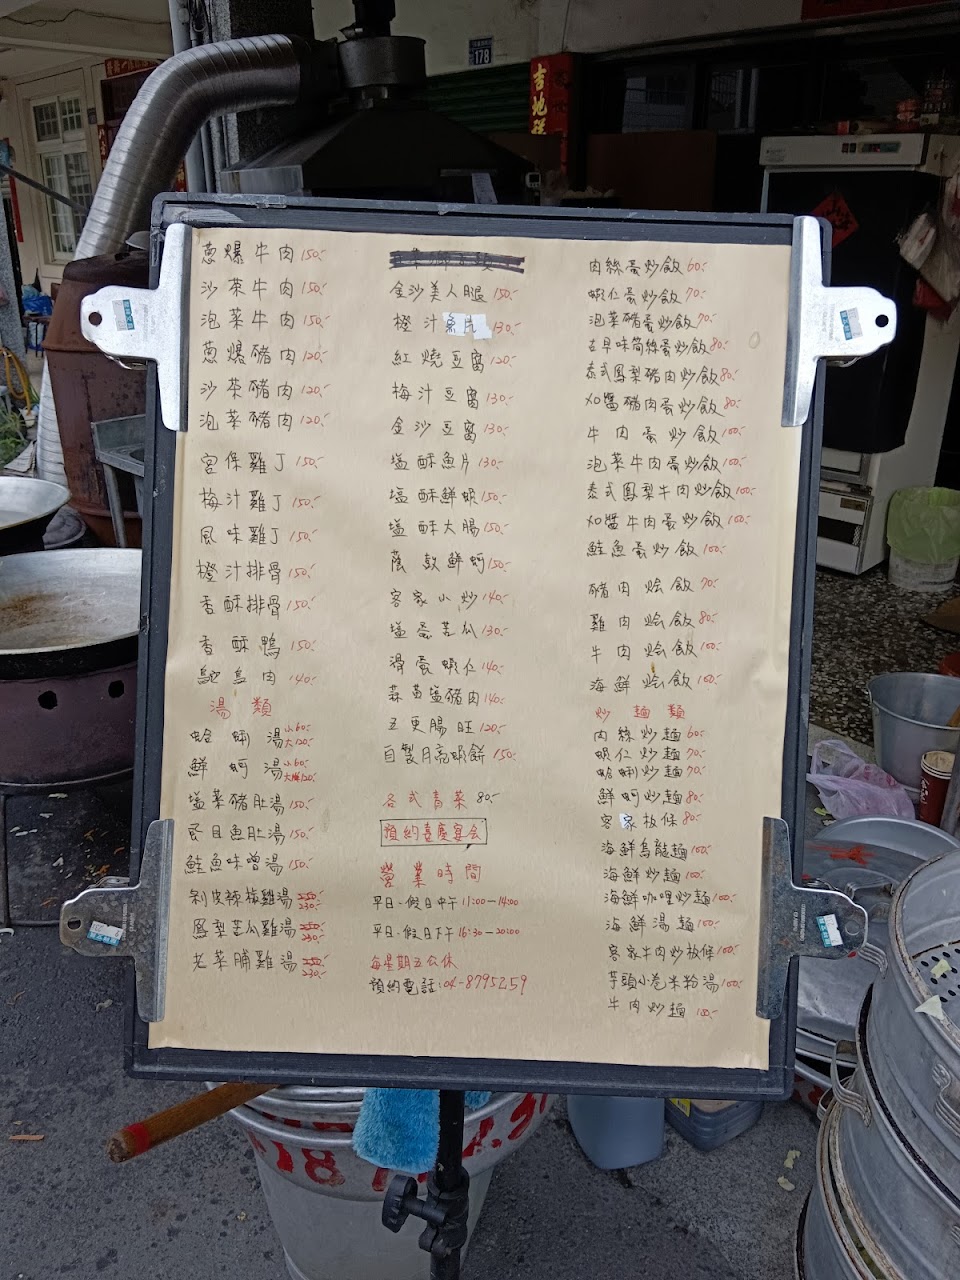 178
吉地祥
蔥爆牛肉 150.-
沙茶牛肉 150.-
泡菜牛肉 150.-
蔥爆豬肉 120.-
沙茶豬肉 120.-
泡菜豬肉 120.-
宮保雞丁 150.-
梅汁雞丁 150.-
風味雞丁 150.-
橙汁排骨 150.-
香酥排骨 150.-
香酥鴨 150.-
鴕鳥肉 140.-
湯類
蛤蜊湯 小60.- 大120.-
鮮蚵湯 小60.- 大120.-
塩菜豬肚湯 150.-
虱目魚肚湯 150.-
鮭魚味噌湯 150.-
剝皮辣椒雞湯 230.-
鳳梨苦瓜雞湯 230.-
老菜脯雞湯 230.-
金沙美人腿 150.-
橙汁魚片 130.-
紅燒豆腐 120.-
梅汁豆腐 130.-
金沙豆腐 130.-
塩酥魚片 130.-
塩酥鮮蝦 150.-
塩酥大腸 150.-
蔭鼓鮮蚵 150.-
客家小炒 140.-
塩蛋苦瓜 130.-
滑蛋蝦仁 140.-
蒜苗塩豬肉 140.-
五更腸旺 120.-
自製月亮蝦餅 150.-
各式青菜 80.-
預約喜慶宴会
營業時間
平日.假日中午 11:00-14:00
平日.假日下午 16:30-20:00
每星期五公休
預約電話:04-8795259
肉絲蛋炒飯 60.-
蝦仁蛋炒飯 70.-
泡菜豬蛋炒飯 70.-
古早味筍絲蛋炒飯 80.-
泰式鳳梨豬肉炒飯 80.-
XO醬豬肉蛋炒飯 80.-
牛肉蛋炒飯 100.-
泡菜牛肉蛋炒飯 100.-
泰式鳳梨牛肉炒飯 100.-
XO醬牛肉蛋炒飯 100.-
鮭魚蛋炒飯 100.-
豬肉烩飯 70.-
雞肉烩飯 80.-
牛肉烩飯 100.-
海鮮烩飯 100.-
炒麵類
肉絲炒麵 60.-
蝦仁炒麵 70.-
蛤蜊炒麵 70.-
鮮蚵炒麵 80.-
客家板條 80.-
海鮮烏龍麵 100.-
海鮮炒麵 100.-
海鮮咖哩炒麵 100.-
海鮮湯麵 100.-
客家牛肉炒板條 100.-
芋頭小卷米粉湯 100.-
牛肉炒麵 100.-